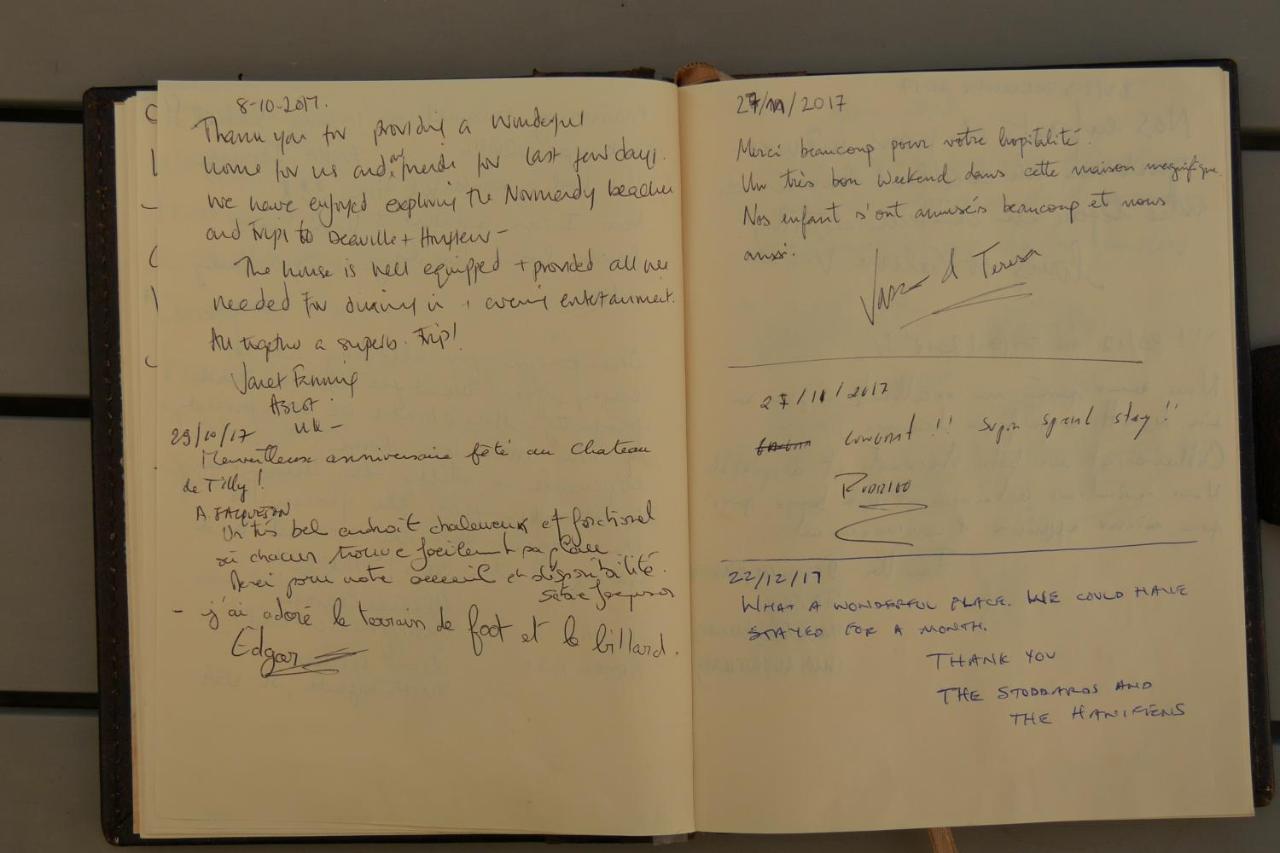 8-10-2017.
Thank you for providing a wonderful
home for us and our friends for last few days.
We have enjoyed exploring the Normandy beaches
and trips to Deauville + Honfleur -
The house is well equipped + provided all we
needed for dining in + evening entertainment.
All together a superb trip!
Janet
UK -
29/10/17
Merveilleux anniversaire fêté au Chateau
de Tilly!
A JACQUESON
Un très bel endroit chaleureux et fonctionel
où chacun trouve facilement sa place
Merci pour votre accueil et disponibilité.
- j'ai adoré le terrain de foot et le billard.
Edgar
27/11/2017
Merci beaucoup pour vôtre hopitalité.
Un très bon weekend dans cette maison magnifique.
Nos enfant s'ont amusés beaucoup et nous
aussi.
& Teresa
27/11/2017
!! stay!!
Rodrigo
22/12/17
WHAT A WONDERFUL PLACE. WE COULD HAVE
STAYED FOR A MONTH.
THANK YOU
THE STODDARDS AND
THE HANIFENS